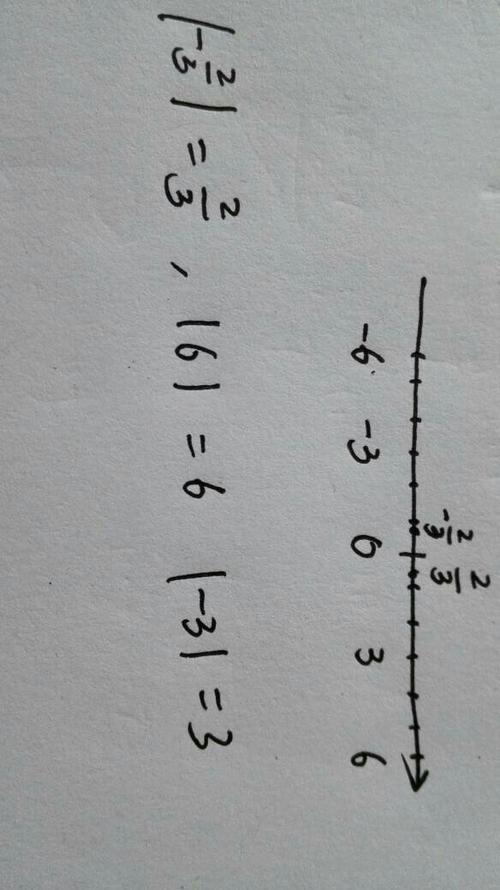 -2/3 2/3
-6 -3 0 3 6
|-2/3| = 2/3 , |6| = 6 |-3| = 3